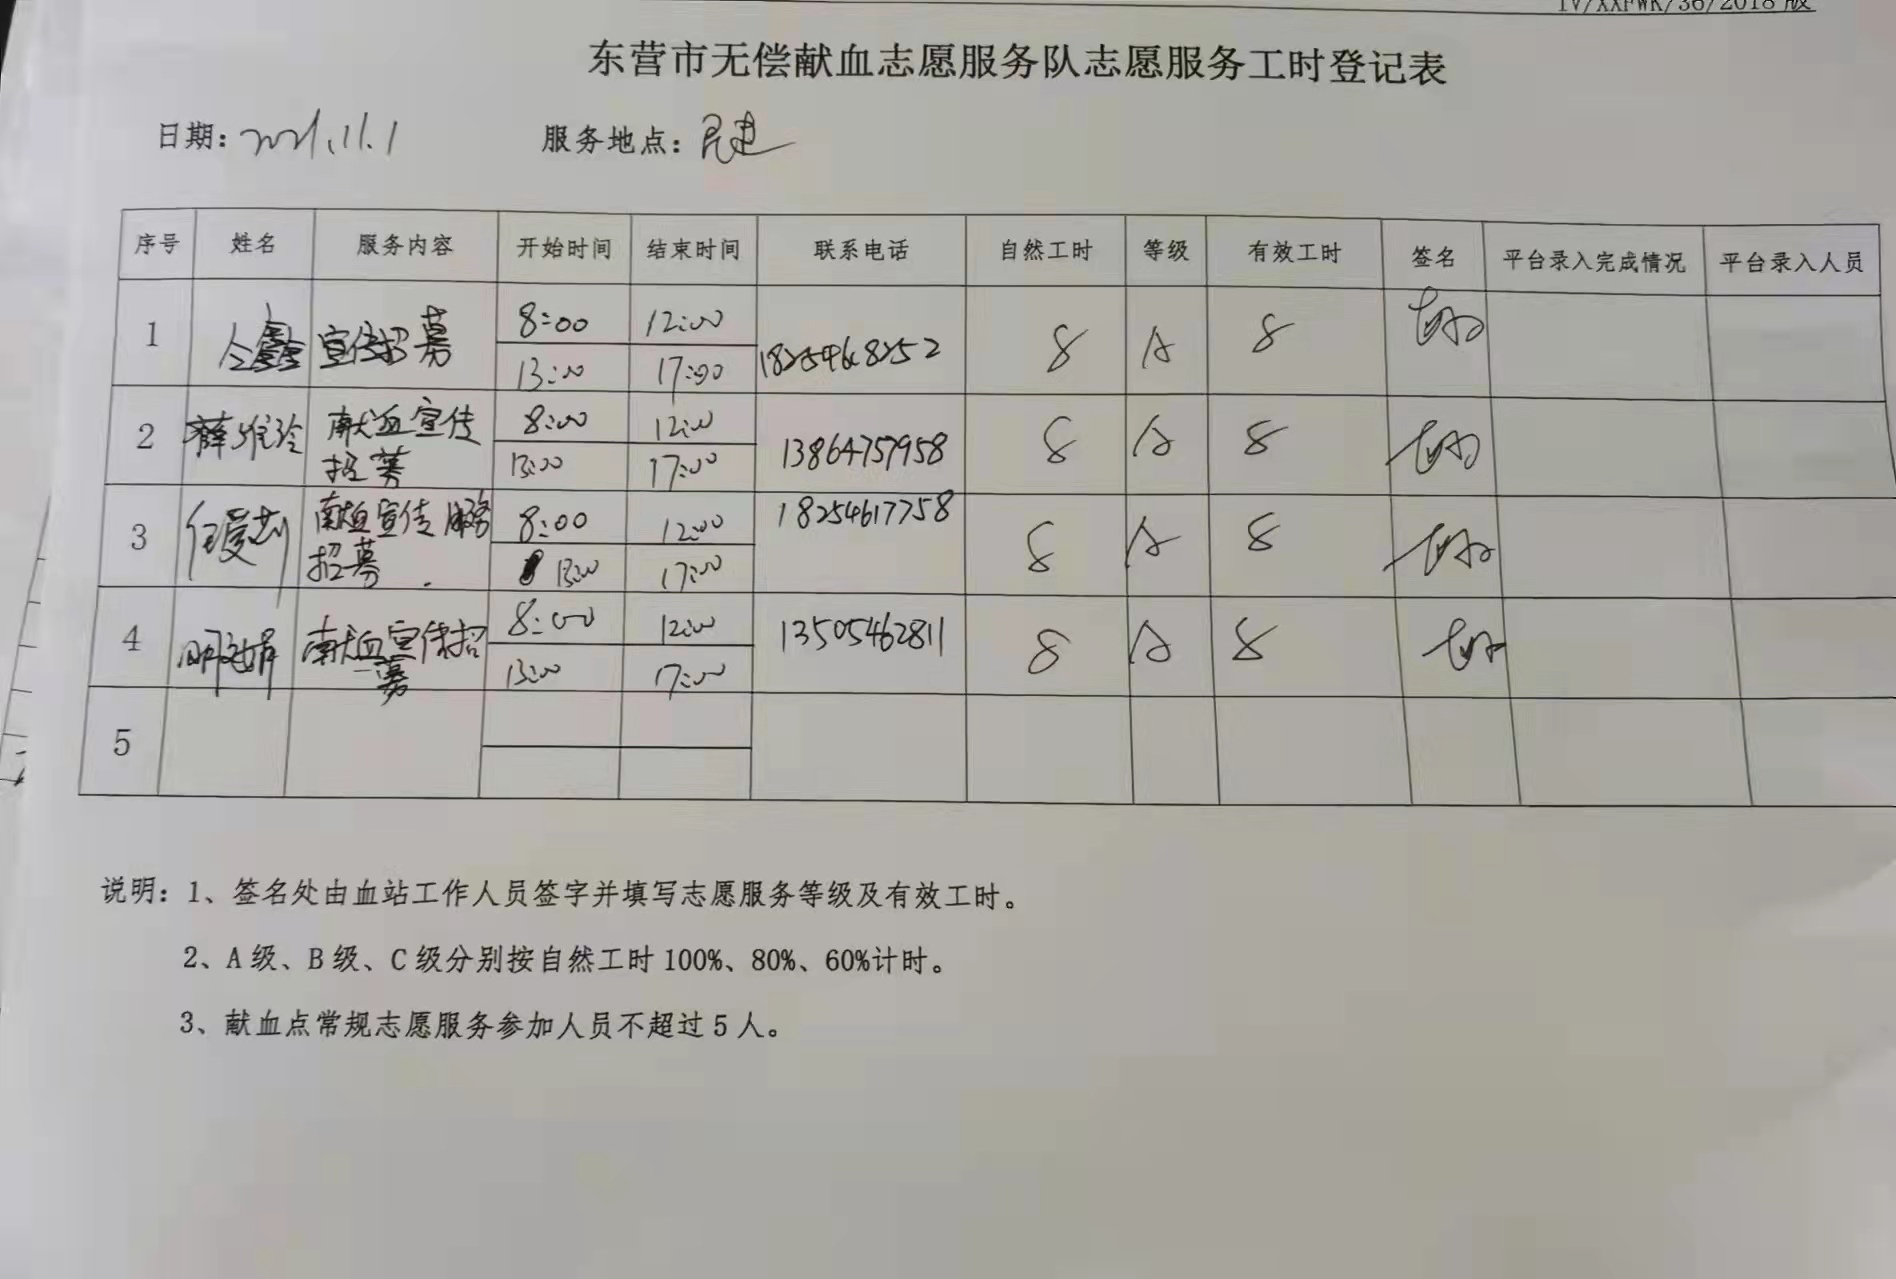 IV/XXFWK/36/2018版
东营市无偿献血志愿服务队志愿服务工时登记表
日期: 2021.11.1 服务地点: 民建
序号 姓名 服务内容 开始时间 结束时间 联系电话 自然工时 等级 有效工时 签名 平台录入完成情况 平台录入人员
1 仝鑫 宣传招募 8:00 12:00 18254668252 8 A 8
13:00 17:00
2 薛维玲 献血宣传 8:00 12:00 13864757958 8 A 8
招募 13:00 17:00
3 任爱菊 献血宣传服务 8:00 12:00 18254617758 8 A 8
招募. 13:00 17:00
4 献血宣传招 8:00 12:00 13505462811 8 A 8
募 13:00 17:00
5
说明: 1、签名处由血站工作人员签字并填写志愿服务等级及有效工时。
2、A级、B级、C级分别按自然工时100%、80%、60%计时。
3、献血点常规志愿服务参加人员不超过5人。